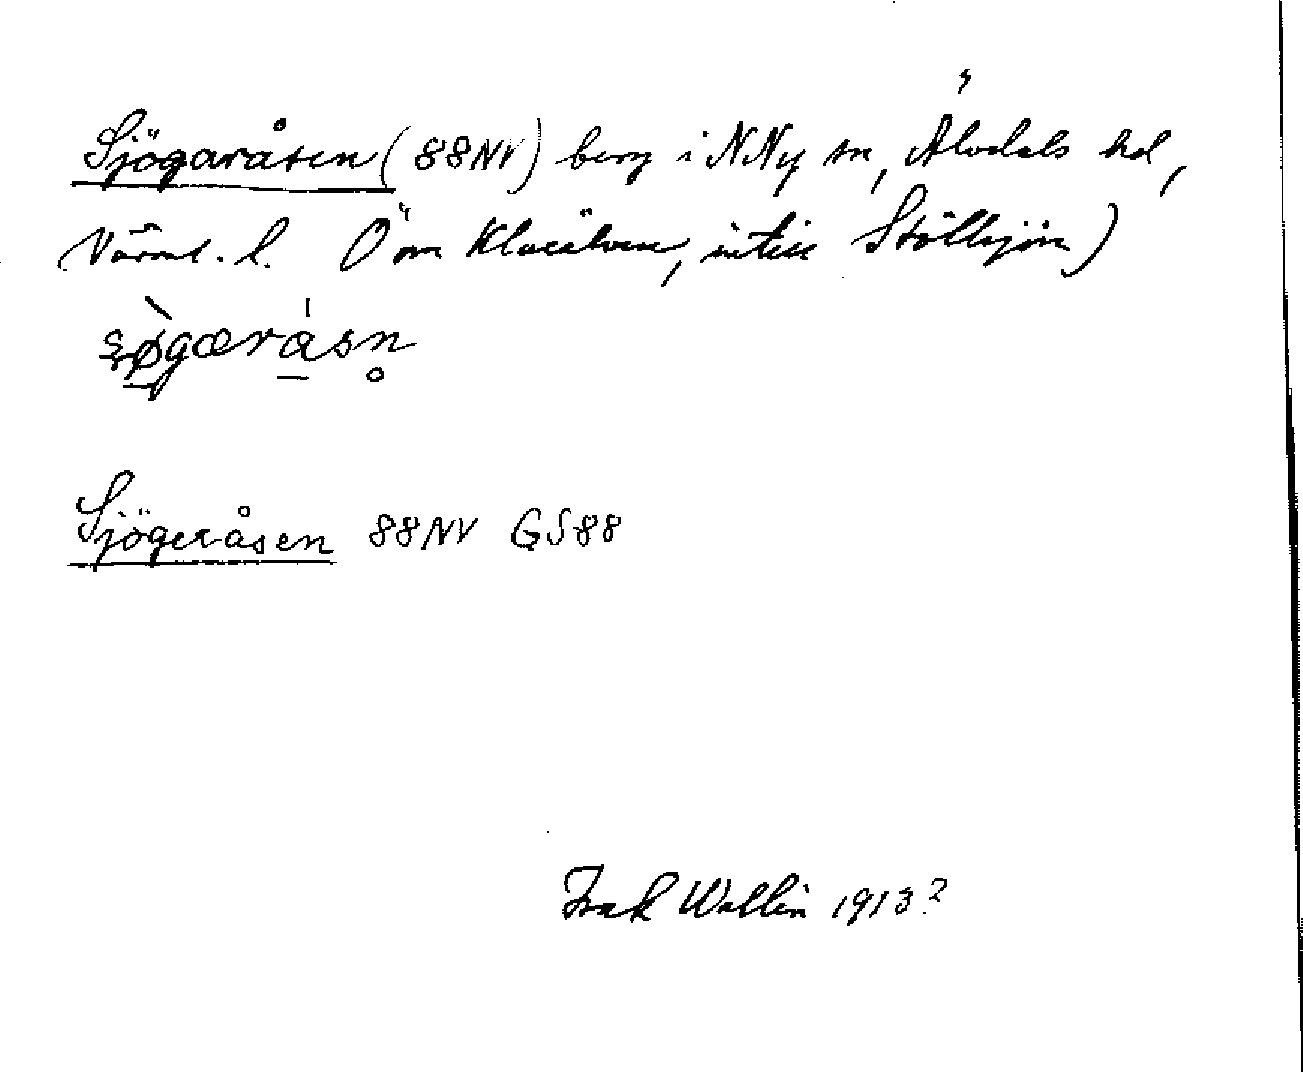 Sjögaråsen (88NV) berg i NNy sn, Älvdals hd,
Värml. l. Ö om Klarälven, intill Stöllsjön)
Sjögeråsen 88NV GS88
Isak Wallin 1913?